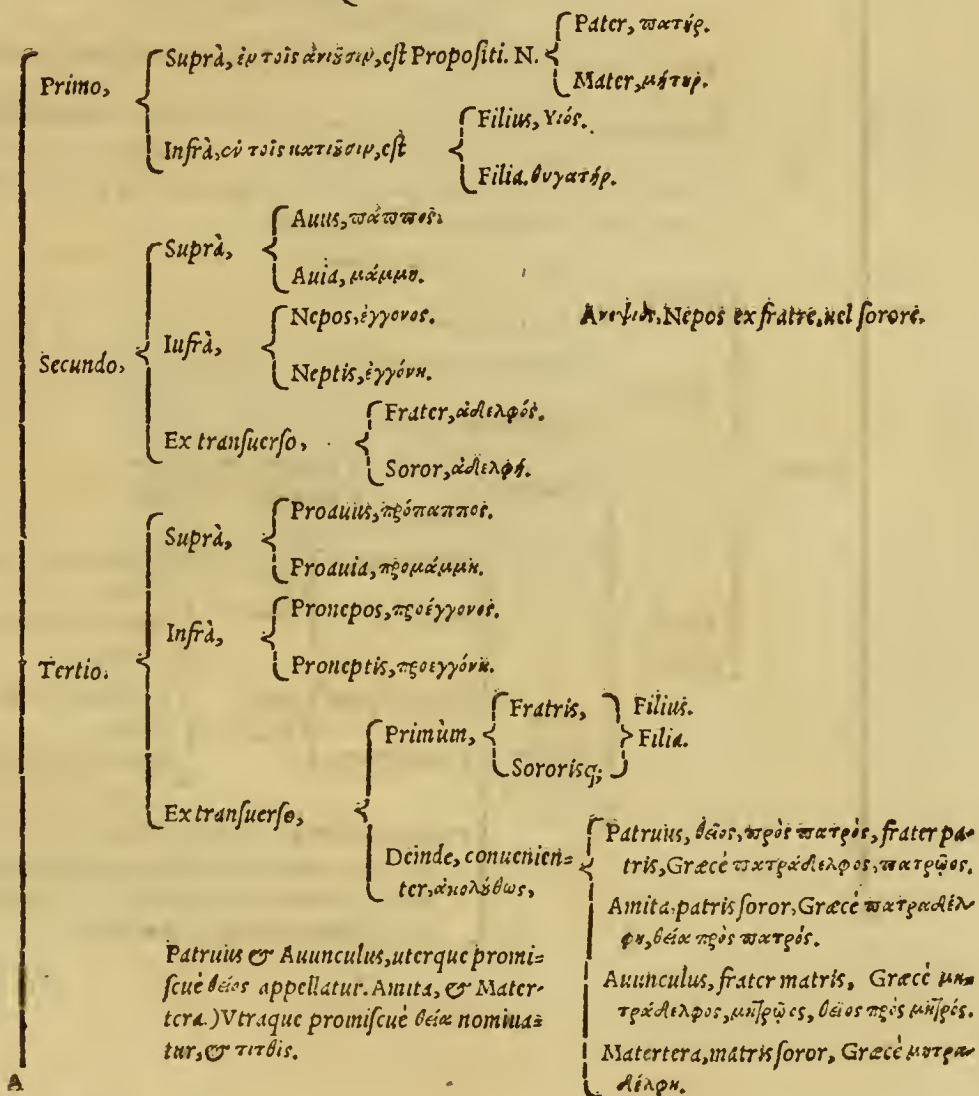 Pater, πατήρ.
Primo,
Suprà, ἐν τοῖς ἀνιοῦσιν, est Propositi. N.
Mater, μήτηρ.
Infrà, ἐν τοῖς κατιοῦσιν, est
Filius, Υιός.
Filia. θυγατήρ.
Secundo,
Suprà,
Auus, πάππος.
Auia, μάμμη.
Infrà,
Nepos, ἔγγονος.
Ανεψιὸς, Nepos ex fratre, uel sorore.
Neptis, ἐγγόνη.
Ex transuerso,
Frater, ἀδελφός.
Soror, ἀδελφή.
Tertio.
Suprà,
Proauus, πρόπαππος.
Proauia, προμάμμη.
Infrà,
Pronepos, προέγγονος.
Proneptis, προεγγόνη.
Ex transuerso,
Primùm,
Fratris,
Sororisq;
Filius.
Filia.
Deinde, conuenien=
ter, ἀκολούθως,
Patruus, θεῖος, πρὸς πατρὸς, frater pa-
tris, Græcè πατράδελφος, πατρῷος.
Amita, patris soror, Græcè πατραδέλ-
φη, θεία πρὸς πατρός.
Auunculus, frater matris, Græcè μη-
τράδελφος, μητρῷος, θεῖος πρὸς μητρός.
Matertera, matris soror, Græcè μητρα-
δέλφη.
Patruus & Auunculus, uterque promi=
scuè θεῖος appellatur. Amita, & Mater-
tera.) Vtraque promiscuè θεία nomina=
tur, & τιτθίς.
A